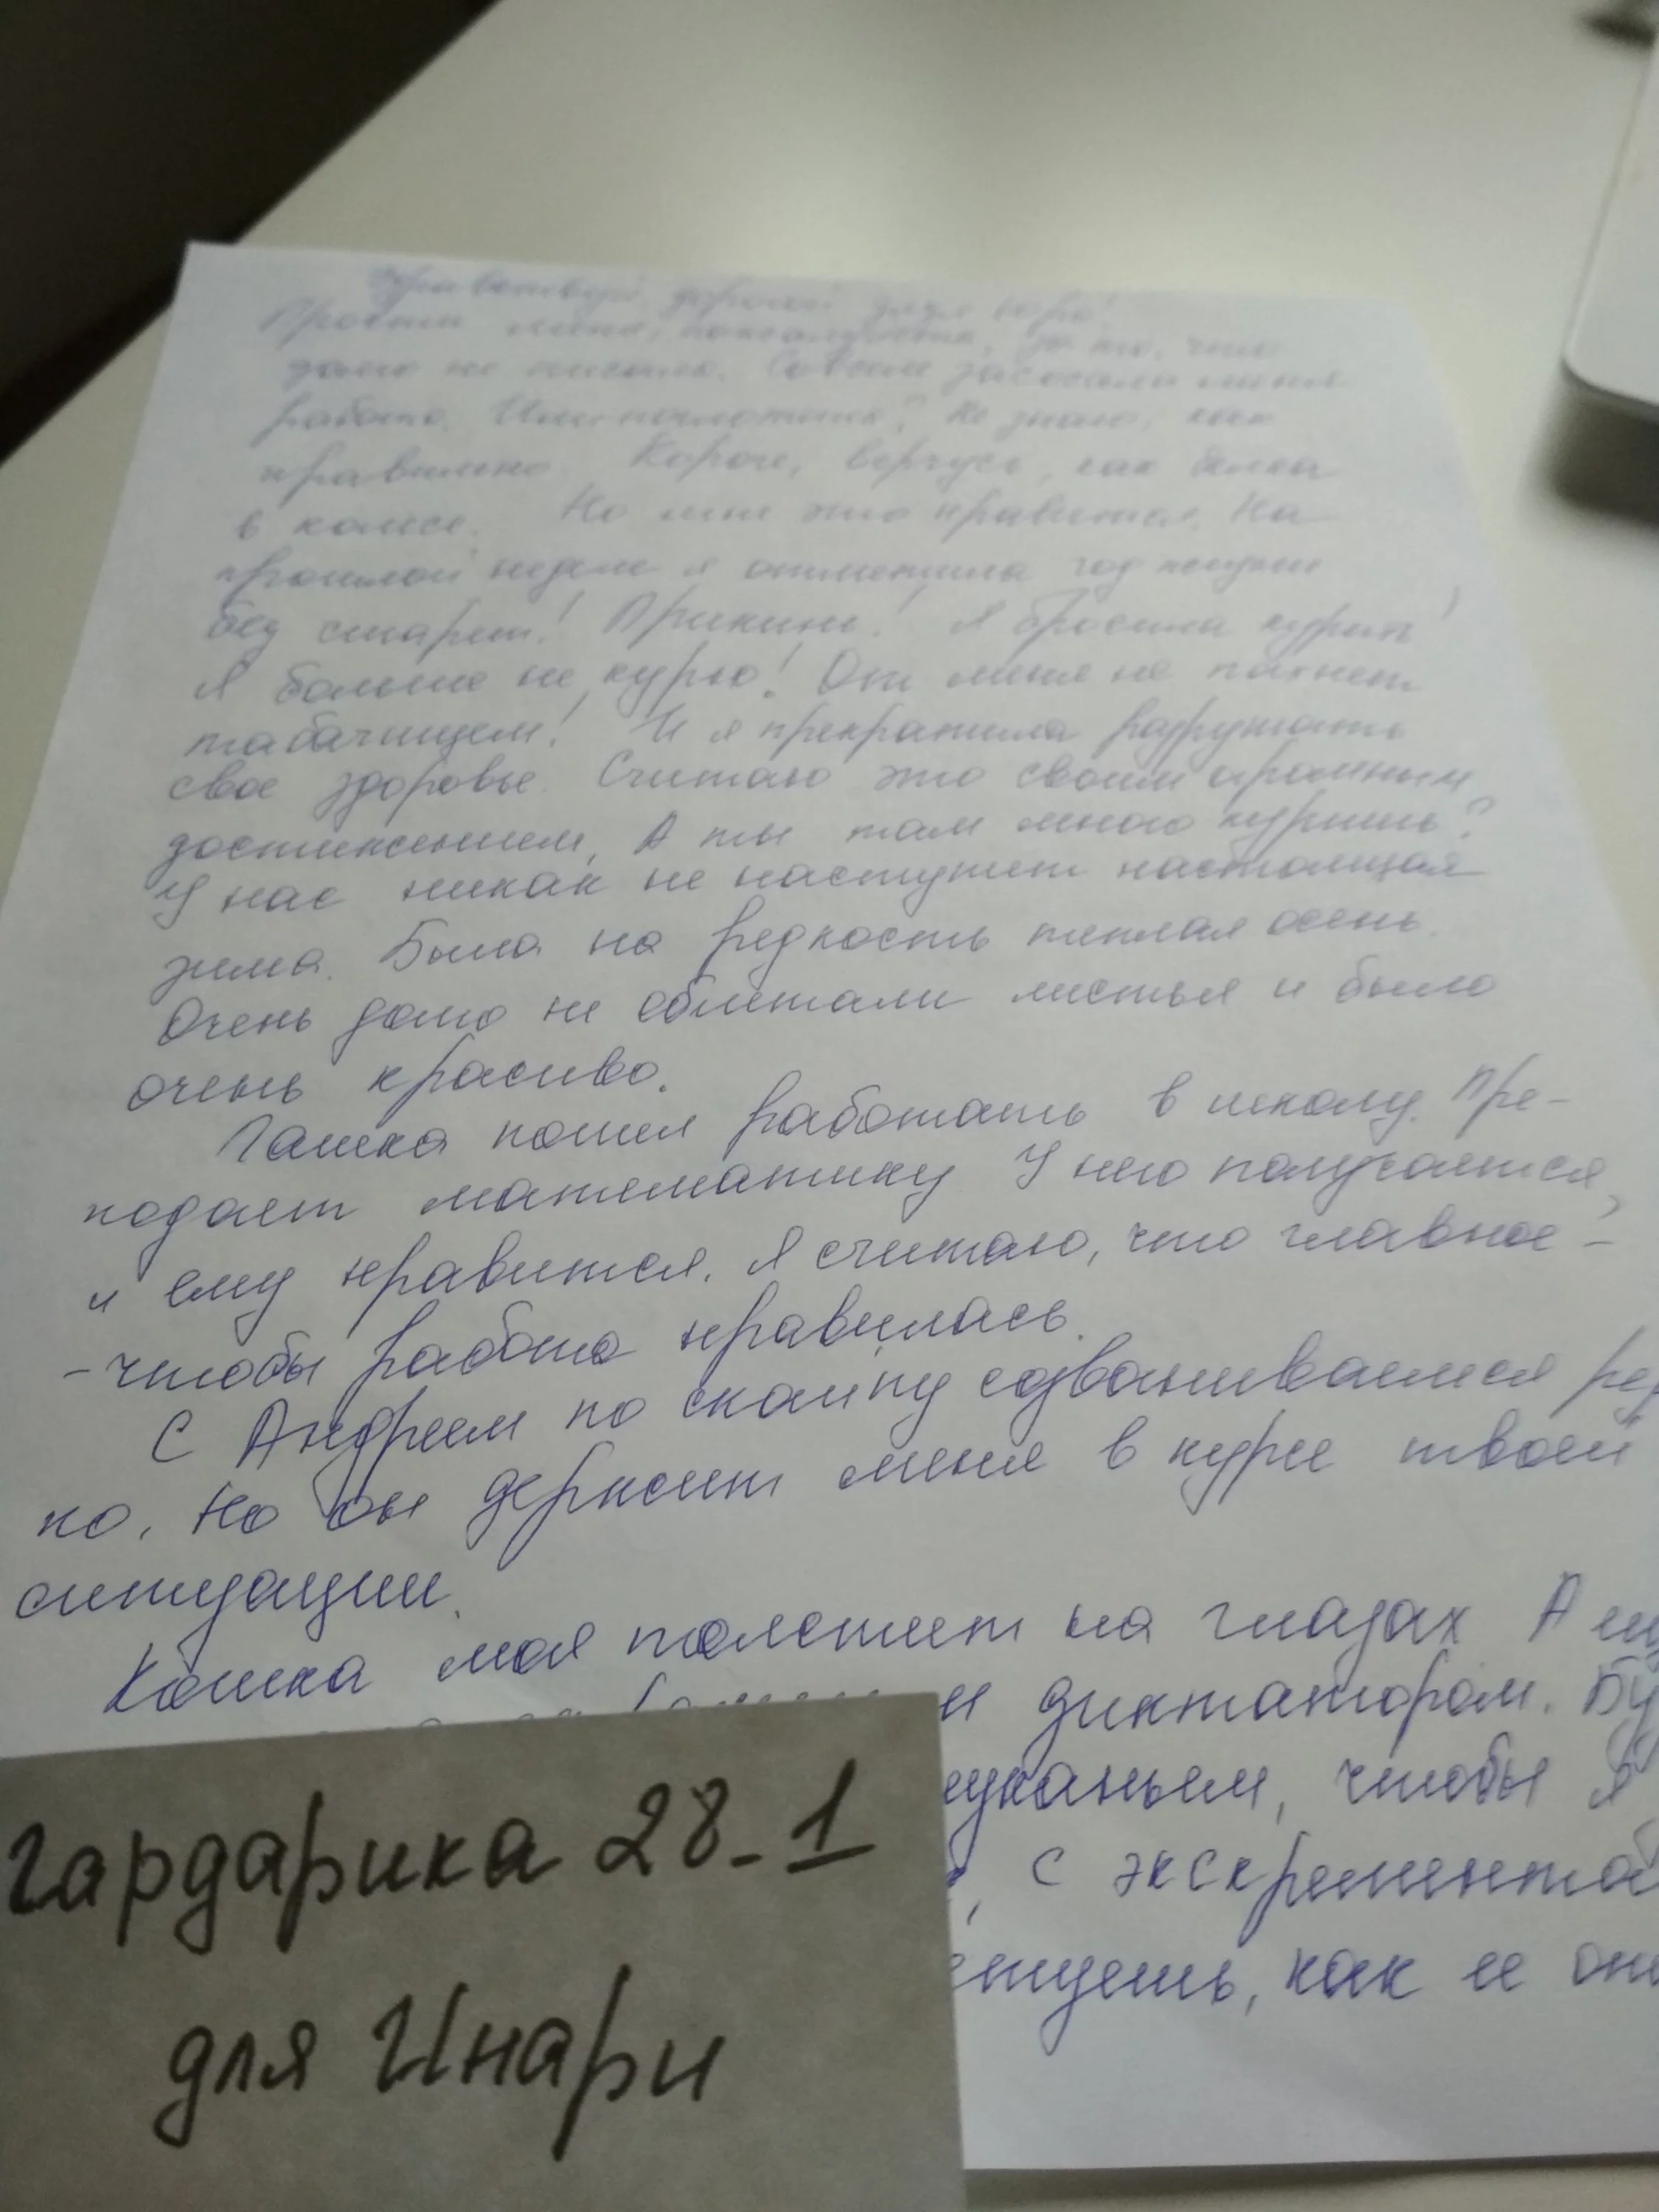 Здравствуй, дорогой дядя Боря!
Прости меня, пожалуйста, за то, что
долго не писала. Совсем засосала меня
работа. Или поглотила? Не знаю, как
правильно. Короче, верчусь, как белка
в колесе. Но мне это нравится. На
прошлой неделе я отметила год жизни
без сигарет! Прикинь! Я бросила курить!
Я больше не курю! От меня не пахнет
табачищем! И я прекратила разрушать
свое здоровье. Считаю это своим огромным
достижением. А ты там много куришь?
У нас никак не наступит настоящая
зима. Была на редкость теплая осень.
Очень долго не облетали листья и было
очень красиво.
Пашка пошел работать в школу. Пре-
подает математику. У него получается,
и ему нравится. Я считаю, что главное -
- чтобы работа нравилась.
С Андреем по скайпу созваниваемся ред
ко. Но он держит меня в курсе твоей
ситуации.
Кошка моя толстеет на глазах. А
диктатором.
чтобы я
, с
как ее
гардарика 28-1
для Инари